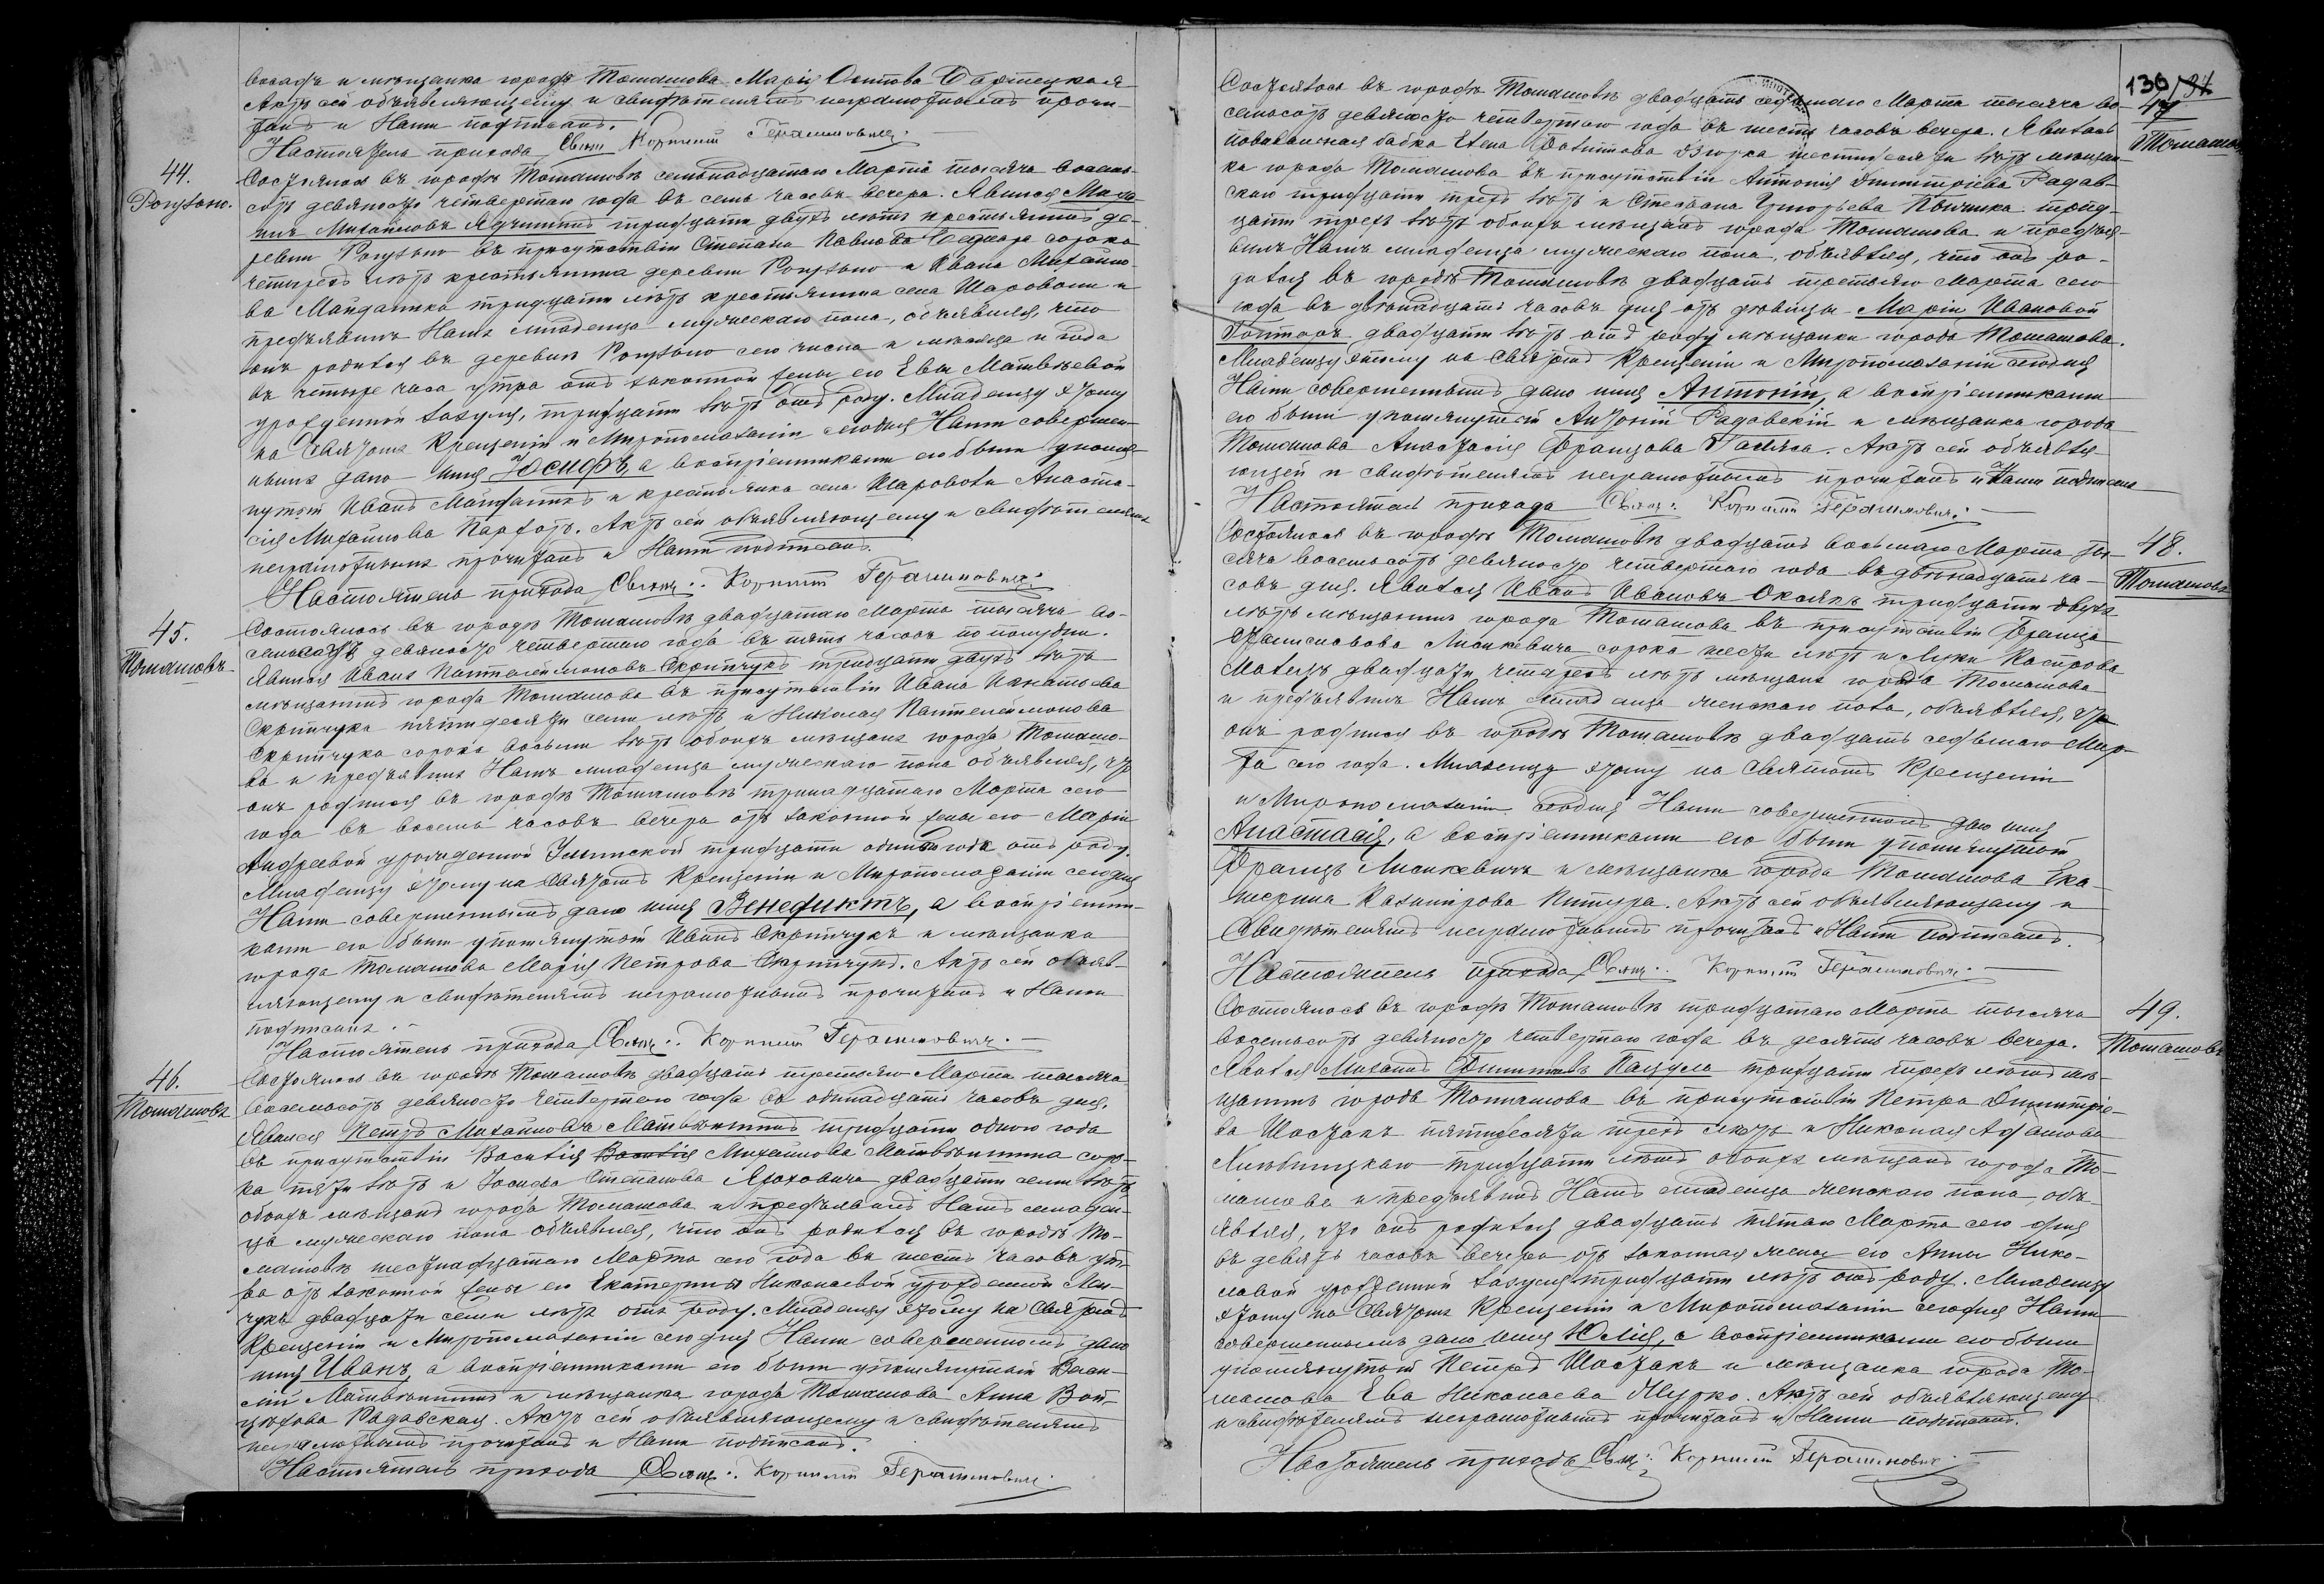 посадъ и мѣщанка города Томашова Марія Осипова
Актъ сей объявляющему и свидѣтелямъ неграмотнымъ прочи-
танъ и Нами подписанъ.
Настоятель прихода Свящ. Корнилій Герасимовичъ.
44.
Состоялось въ городѣ Томашовѣ семнадцатаго Марта тысяча восемь-
сотъ девяносто четвертаго года въ семь часовъ вечера. Явился
Михайловъ тридцати двухъ лѣтъ крестьянинъ де-
ревни въ присутствіи Степана Павлова сорока
четырехъ лѣтъ крестьянина деревни и Ивана Михайло-
ва Майданика тридцати лѣтъ крестьянина села Шароволи и
предъявилъ Намъ младенца мужескаго пола, объявляя, что
онъ родился въ деревнѣ сего числа и мѣсяца и года
въ четыре часа утра отъ законной жены его Евы Матвѣевой
урожденной Закуля, тридцати лѣтъ отъ роду. Младенцу этому
на Святомъ Крещеніи и Мѵропомазаніи сегодня Нами совершен-
нымъ дано имя Юсифъ, а воспріемниками его были упомя-
нутый Иванъ Майданикъ и крестьянка села Шароволи Анаста-
сія Михайлова Актъ сей объявляющему и свидѣтелямъ
неграмотнымъ прочитанъ и Нами подписанъ.
Настоятель прихода Свящ.: Корнилій Герасимовичъ.
45.
Томашовъ.
Состоялось въ городѣ Томашовѣ двадцатаго Марта тысяча во-
семьсотъ девяносто четвертаго года въ пять часовъ по полудни.
Явился Иванъ Пантелеймоновъ Скрипчукъ тридцати двухъ лѣтъ
мѣщанинъ города Томашова въ присутствіи Ивана Игнатьева
Скрипчука пятидесяти семи лѣтъ и Николая Пантелеймонова
Скрипчука сорока восьми лѣтъ обоихъ мѣщанъ города Томашо-
ва и предъявилъ Намъ младенца мужескаго пола объявляя, что
онъ родился въ городѣ Томашовѣ тринадцатаго Марта сего
года въ восемь часовъ вечера отъ законной жены его Маріи
Андреевой урожденной тридцати одного года отъ роду.
Младенцу этому на Святомъ Крещеніи и Мѵропомазаніи сегодня
Нами совершеннымъ дано имя Венедиктъ, а воспріемни-
ками его были упомянутый Иванъ Скрипчукъ и мѣщанка
города Томашова Марія Петрова Скрипчукъ. Актъ сей объяв-
ляющему и свидѣтелямъ неграмотнымъ прочитанъ и Нами
подписанъ.
Настоятель прихода Свящ.: Корнилій Герасимовичъ.
46.
Томашовъ
Состоялось въ городѣ Томашовѣ двадцать третьяго Марта тысяча
восемьсотъ девяносто четвертаго года въ одинадцать часовъ дня.
Явился Петръ Михайловъ Матвѣишинъ тридцати одного года
въ присутствіи Василія Василія Михайлова Матвѣишина соро-
ка пяти лѣтъ и Іосифа Степанова двадцати семи лѣтъ
обоихъ мѣщанъ города Томашова и предъявилъ Намъ младен-
ца мужескаго пола объявляя, что онъ родился въ городѣ То-
машовѣ шестнадцатаго Марта сего года въ шесть часовъ ут-
ра отъ законной жены его Екатерины Николаевой урожденной
двадцати семи лѣтъ отъ роду. Младенцу этому на Святомъ
Крещеніи и Мѵропомазаніи сегодня Нами совершенномъ дано
имя Иванъ, а воспріемниками его были упомянутый Васи-
лій Матвѣишинъ и мѣщанка города Томашова Анна Вой-
цѣхова Радавская. Актъ сей объявляющему и свидѣтелямъ
неграмотнымъ прочитанъ и Нами подписанъ.
Настоятель прихода Свящ.: Корнилій Герасимовичъ.
136
47
Томашовъ
Состоялось въ городѣ Томашовѣ двадцать седьмаго Марта тысяча во-
семьсотъ девяносто четвертаго года въ шесть часовъ вечера. Явилась
повивальная бабка Елена шестидесяти лѣтъ мѣщан-
ка города Томашова въ присутствіи Антонія Дмитріева Радав-
скаго тридцати трехъ лѣтъ и Степана Григорьева трид-
цати трехъ лѣтъ обоихъ мѣщанъ города Томашова и предъя-
вилъ Намъ младенца мужескаго пола, объявляя, что онъ ро-
дился въ городѣ Томашовѣ двадцать третьяго Марта сего
года въ двѣнадцать часовъ дня отъ дѣвицы Маріи Ивановой
двадцати лѣтъ отъ роду мѣщанки города Томашова.
Младенцу этому на Святомъ Крещеніи и Мѵропомазаніи сегодня
Нами совершеннымъ дано имя Антоній, а воспріемниками
его были упомянутый Антоній Радавскій и мѣщанка города
Томашова Анастасія Францова Актъ сей объявля-
ющей и свидѣтелямъ неграмотнымъ прочитанъ и Нами подписанъ
Настоятель прихода Свящ: Корнилій Герасимовичъ.
48.
Томашовъ
Состоялось въ городѣ Томашовѣ двадцать восьмаго Марта ты-
сяча восемьсотъ девяносто четвертаго года въ двѣнадцать ча-
совъ дня. Явился Иванъ Ивановъ тридцати двухъ
лѣтъ мѣщанинъ города Томашова въ присутствіи Франца
Лисикевича сорока шести лѣтъ и Луки
двадцати четырехъ лѣтъ мѣщанъ города Томашова
и предъявилъ Намъ младенца женскаго пола, объявляя, что
онъ родился въ городѣ Томашовѣ двадцать седьмаго Мар-
та сего года. Младенцу этому на Святомъ Крещеніи
и Мѵропомазаніи сегодня Нами совершенномъ дано имя
Анастасія, а воспріемниками его были упомянутый
Францъ Лисикевичъ и мѣщанка города Томашова Ека-
терина Казимірова Актъ сей объявляющему и
свидѣтелямъ неграмотнымъ прочитанъ и Нами подписанъ.
Настоятель прихода Свящ.: Корнилій Герасимовичъ.
49.
Томашовъ
Состоялось въ городѣ Томашовѣ тридцатаго Марта тысяча
восемьсотъ девяносто четвертаго года въ десять часовъ вечера.
Явился Михаилъ тридцати трехъ лѣтъ мѣ-
щанинъ города Томашова въ присутствіи Петра Дмитріе-
ва Шостакъ пятидесяти трехъ лѣтъ и Николая Адамова
тридцати лѣтъ обоихъ мѣщанъ города То-
машова и предъявилъ Намъ младенца женскаго пола, объ-
являя, что онъ родился двадцать пятаго Марта сего дня
въ девять часовъ вечера отъ законная жены его Анны Нико-
лавой урожденной Закуля тридцати лѣтъ отъ роду. Младенцу
этому на Святомъ Крещеніи и Мѵропомазаніи сегодня Нами
совершеннымъ дано имя Юлія, а воспріемниками его были
упомянутый Петръ Шостакъ и мѣщанка города То-
машова Ева Николаева Актъ сей объявляющему
и свидѣтелямъ неграмотнымъ прочитанъ и Нами подписанъ.
Настоятель прихода Свящ: Корнилій Герасимовичъ.